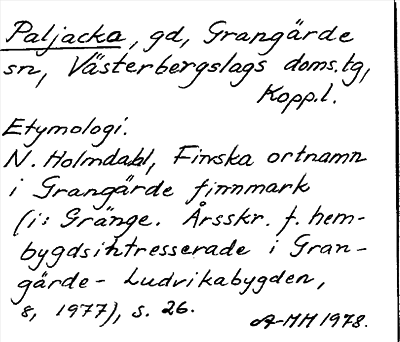 Paljacka, gd, Grangärde
sn, Västerbergslags doms.tg,
Kopp.l.
Etymologi.
N. Holmdahl, Finska ortnamn
i Grangärde finnmark
(i: Gränge. Årsskr. f. hem-
bygdsintresserade i Gran-
gärde - Ludvikabygden,
8, 1977), s. 26.
A-MH 1978.